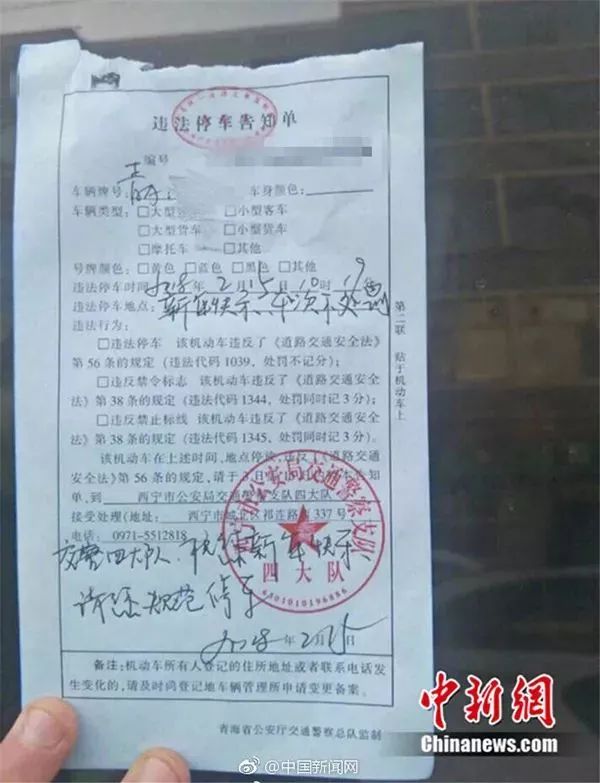 违法停车告知单
编号
车辆牌号:青 车身颜色:
车辆类型:□大型 □小型客车
□大型货车 □小型货车
□摩托车 □其他
号牌颜色:□黄色 □蓝色 □黑色 □其他
违法停车时间:2018年2月15日10时19分
违法停车地点:新年快乐、本次不处罚
违法行为:
□违法停车 该机动车违反了《道路交通安全法》
第56条的规定(违法代码1039,处罚不记分);
□违反禁令标志 该机动车违反了《道路交通安全
法》第38条的规定(违法代码1344,处罚同时记3分);
□违反禁止标线 该机动车违反了《道路交通安全
法》第38条的规定(违法代码1345,处罚同时记3分)。
该机动车在上述时间、地点停放,违反《道路交通
安全法》第56条的规定,请于3日 告知
单,到 西宁市公安局交通警察支队四大队
接受处理(地址: 西宁市城北区祁连路 337号
电话: 0971-5512818
交警四大队 祝您新年快乐
请您规范停车
2018年2月15日
备注:机动车所有人登记的住所地址或者联系电话发
生变化的,请及时向登记地车辆管理所申请变更备案。
青海省公安厅交通警察总队监制
第二联 贴于机动车上
公安局交通警察支队
四大队
6301010196886
中新网
Chinanews.com
@中国新闻网